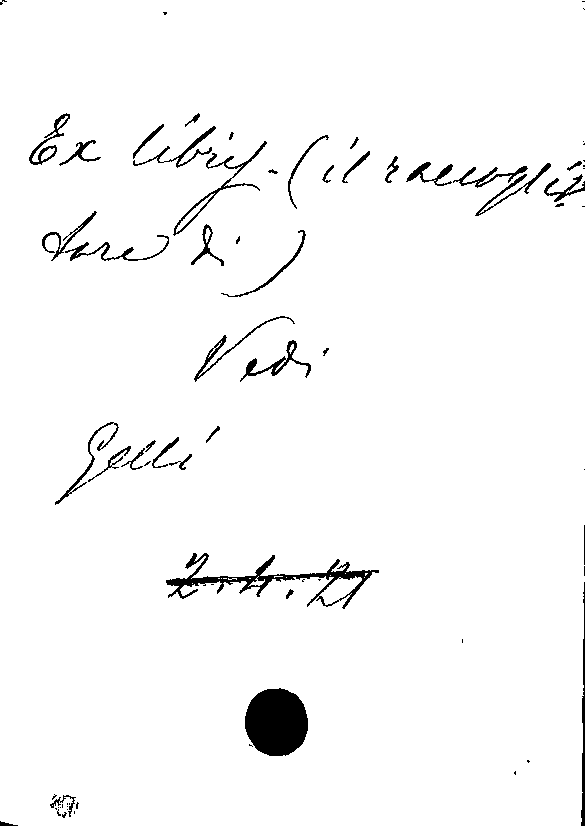 Ex libris. (il raccogli
tore di)
Vedi
Gelli
2.4.21